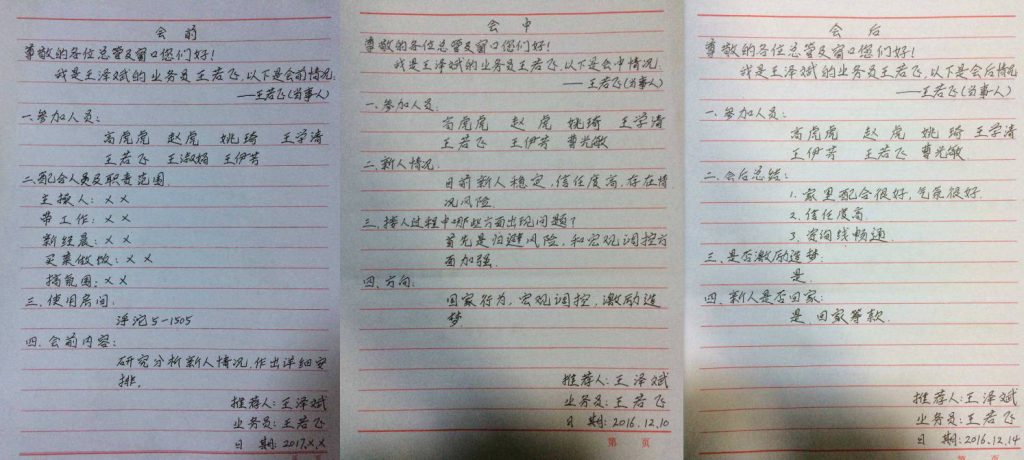 会 前
尊敬的各位总管及窗口您们好!
我是王泽斌的业务员王若飞,以下是会前情况.
——王若飞(当事人)
一.参加人员:
高虎虎 赵虎 姚琦 王学清
王若飞 王淑娟 王伊芳
二.配合人员及职责范围.
主接人:××
带工作:××
新经晨:××
买菜做饭:××
搞氛围:××
三.使用房间:
滹沱5-1505
四.会前内容:
研究分析新人情况,作出详细安
排.
推荐人:王泽斌
业务员:王若飞
日 期:2017.×.×
会 中
尊敬的各位总管及窗口您们好!
我是王泽斌的业务员王若飞,以下是会中情况.
——王若飞(当事人)
一.参加人员.
高虎虎 赵虎 姚琦 王学清
王若飞 王伊芳 曹光敏
二.新人情况.
目前新人稳定,信任度高,存在情
况风险.
三.接人过程中哪些方面出现问题?
首先是规避风险,和宏观调控方
面加强.
四.方向:
国家行为,宏观调控,激励造
梦.
推荐人:王泽斌
业务员:王若飞
日 期:2016.12.10
第 页
会 后
尊敬的各位总管及窗口您们好!
我是王泽斌的业务员王若飞,以下是会后情况
——王若飞(当事人)
一.参加人员:
高虎虎 赵虎 姚琦 王学清
王伊芳 王若飞 曹光敏.
二.会后总结:
1.家里配合很好,气氛很好.
2.信任度高.
3.资询线畅通.
三.是否激励造梦:
是.
四.新人是否回家:
是.回家筹款.
推荐人:王泽斌
业务员:王若飞
日 期:2016.12.14
第 页